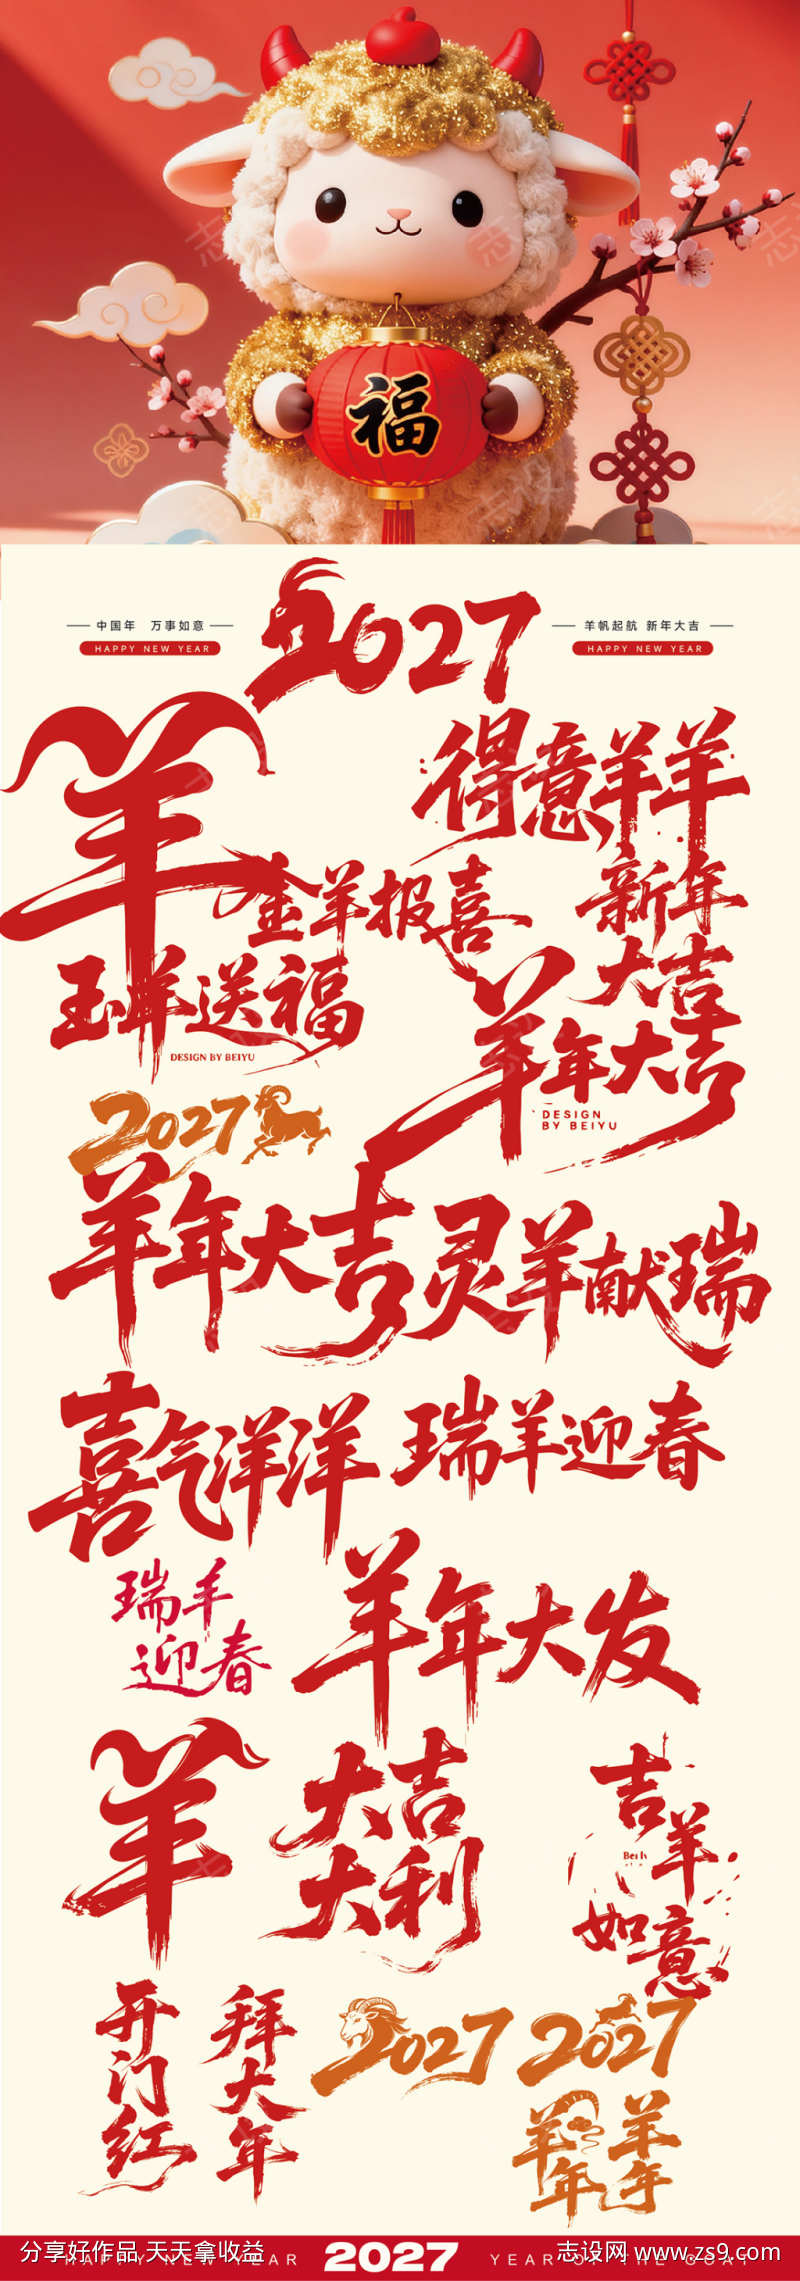 福
2027
中国年 万事如意
HAPPY NEW YEAR
羊帆起航 新年大吉
HAPPY NEW YEAR
羊
得意羊羊
金羊报喜
新年
大吉
玉羊送福
DESIGN BY BEIYU
羊年大吉
DESIGN
BY BEIYU
2027
羊年大吉
灵羊献瑞
喜气洋洋
瑞羊迎春
瑞羊
迎春
羊年大发
羊
大吉
大利
吉羊
如意
开门红
拜大年
2027
2027
羊年
羊年
分享好作品 天天拿收益
HAPPY NEW YEAR
2027
YEAR OF THE GOAT
志设网 www.zs9.com